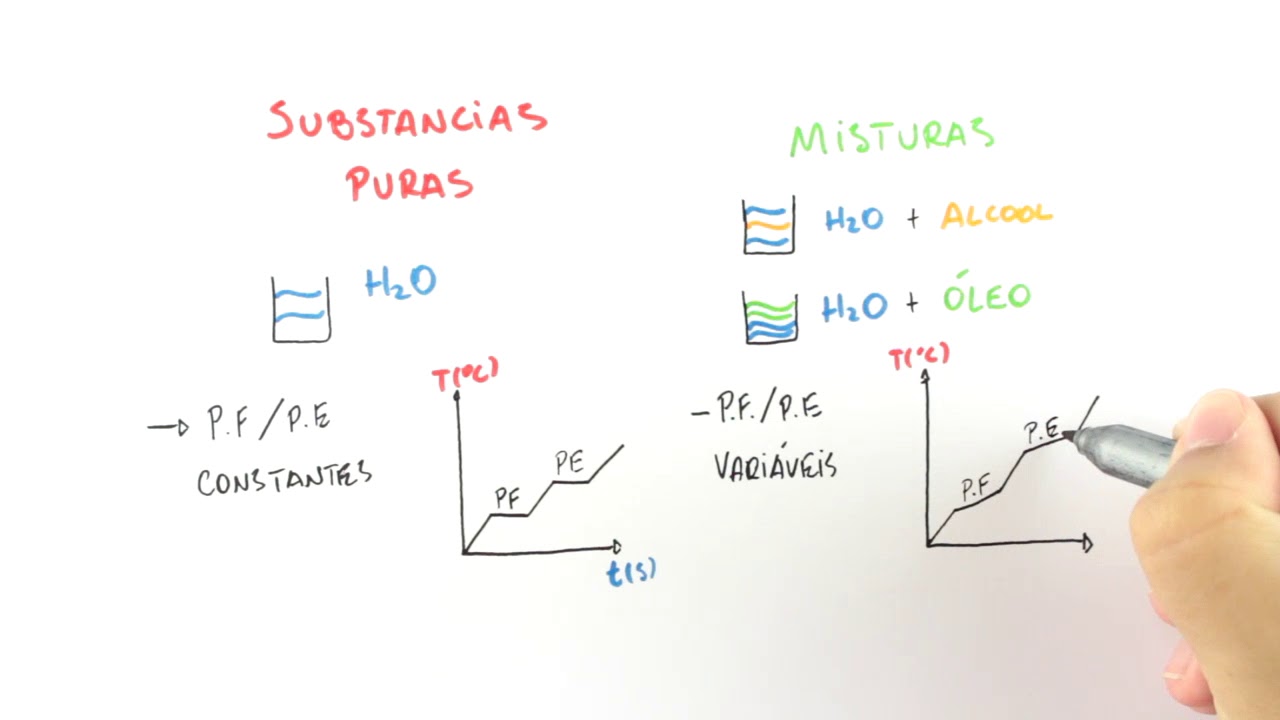 SUBSTANCIAS
PURAS
H₂O
→ P.F / P.E
CONSTANTES
T(ºC)
PE
PF
t(s)
MISTURAS
H₂O + ALCOOL
H₂O + ÓLEO
- P.F. / P.E
VARIÁVEIS
T(°C)
P.E
P.F